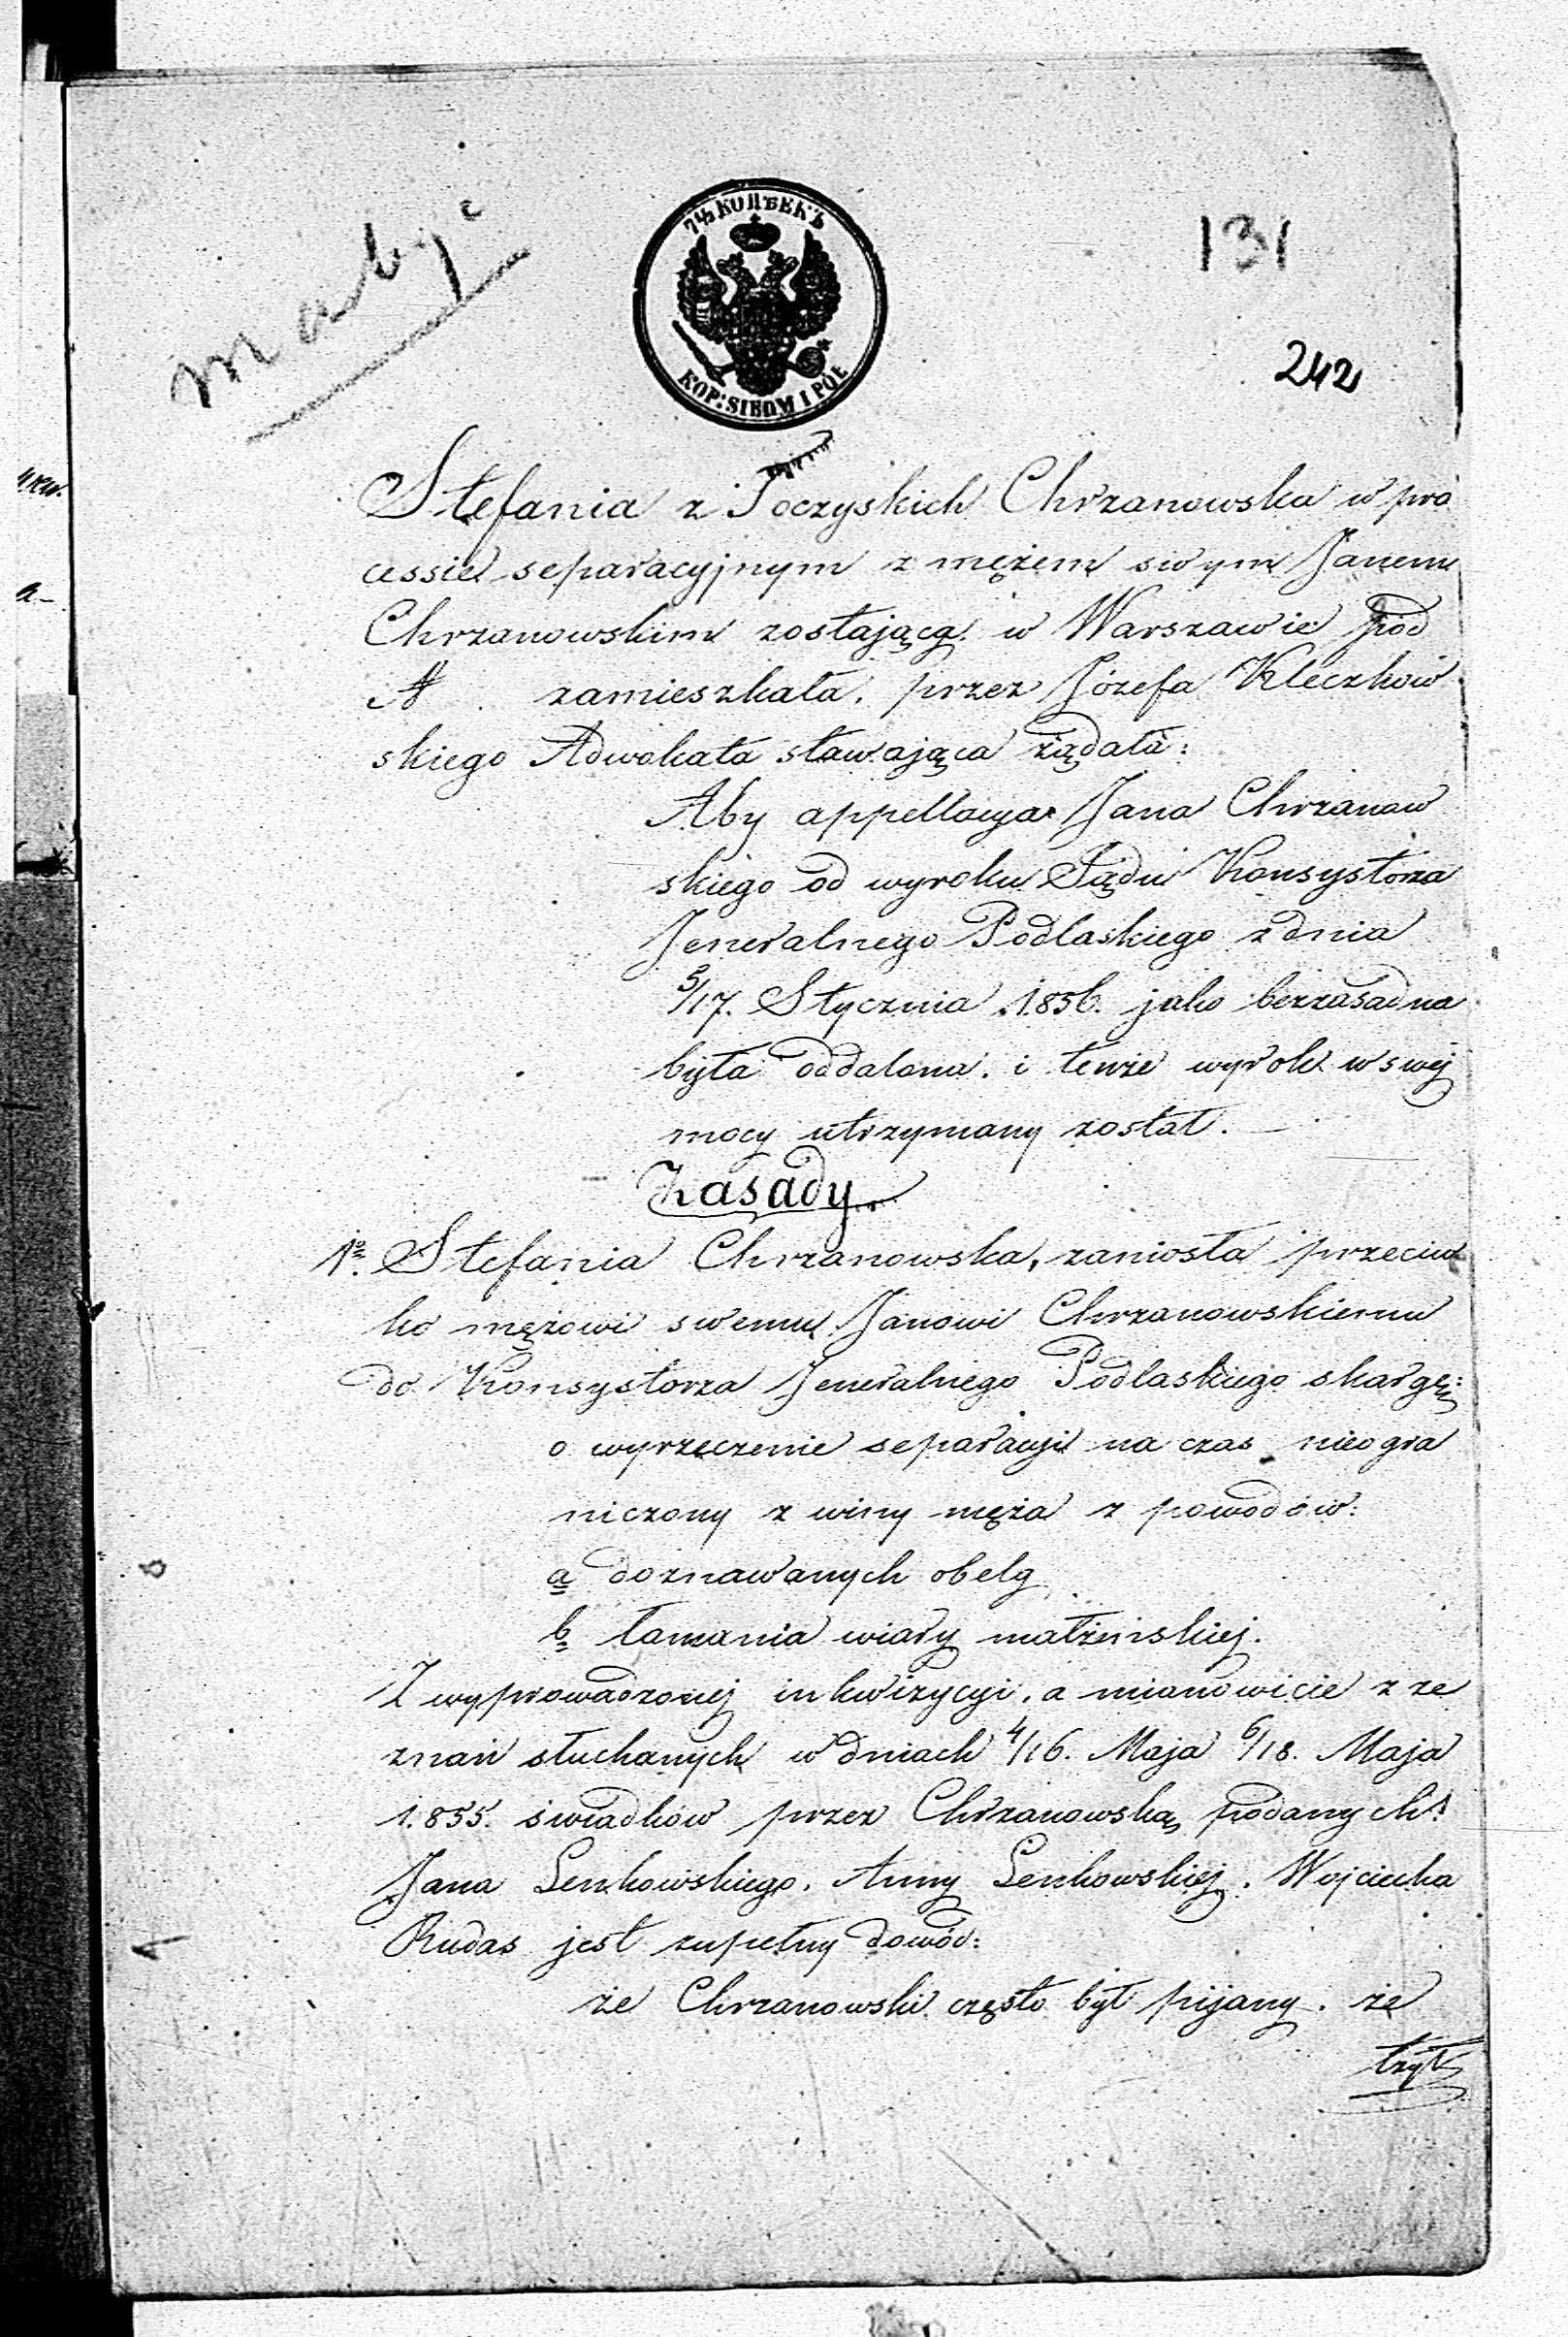 131
242
7½ КОПѢЕКЪ
KOP: SIEDM I PÓŁ
Stefania z Toczyskich Chrzanowska w pro
cessie separacyjnym z mężem swym Janem
Chrzanowskim zostającą. w Warszawie pod
N . zamieszkała, przez Józefa Kleczkow
skiego Adwokata stawająca żądała:
Aby appellacya Jana Chrzanow
skiego od wyroku Sądu Konsystorza
Jeneralnego Podlaskiego z dnia
5/17. Stycznia 1856. jako bezzasadna
była oddalona. i tenże wyrok w swéj
mocy utrzymany został.
Zasady
1o. Stefania Chrzanowska, zaniosła przeciw
ko mężowi swemu Janowi Chrzanowskiemu
do Konsystorza Jeneralnego Podlaskiego skargę:
o wyrzeczenie separacyi na czas nieogra
niczony z winy męża z powodów:
a doznawanych obelg
b łamania wiary małżeńskiej.
Z wyprowadzonej inkwizycyi, a mianowicie z ze
znań słuchanych w dniach 4/16. Maja 6/18. Maja
1855. świadków przez Chrzanowską podanych:
Jana Lenkowskiego, Anny Lenkowskiej, Wojciecha
Rudas jest zupełny dowód:
że Chrzanowski często był pijany. że